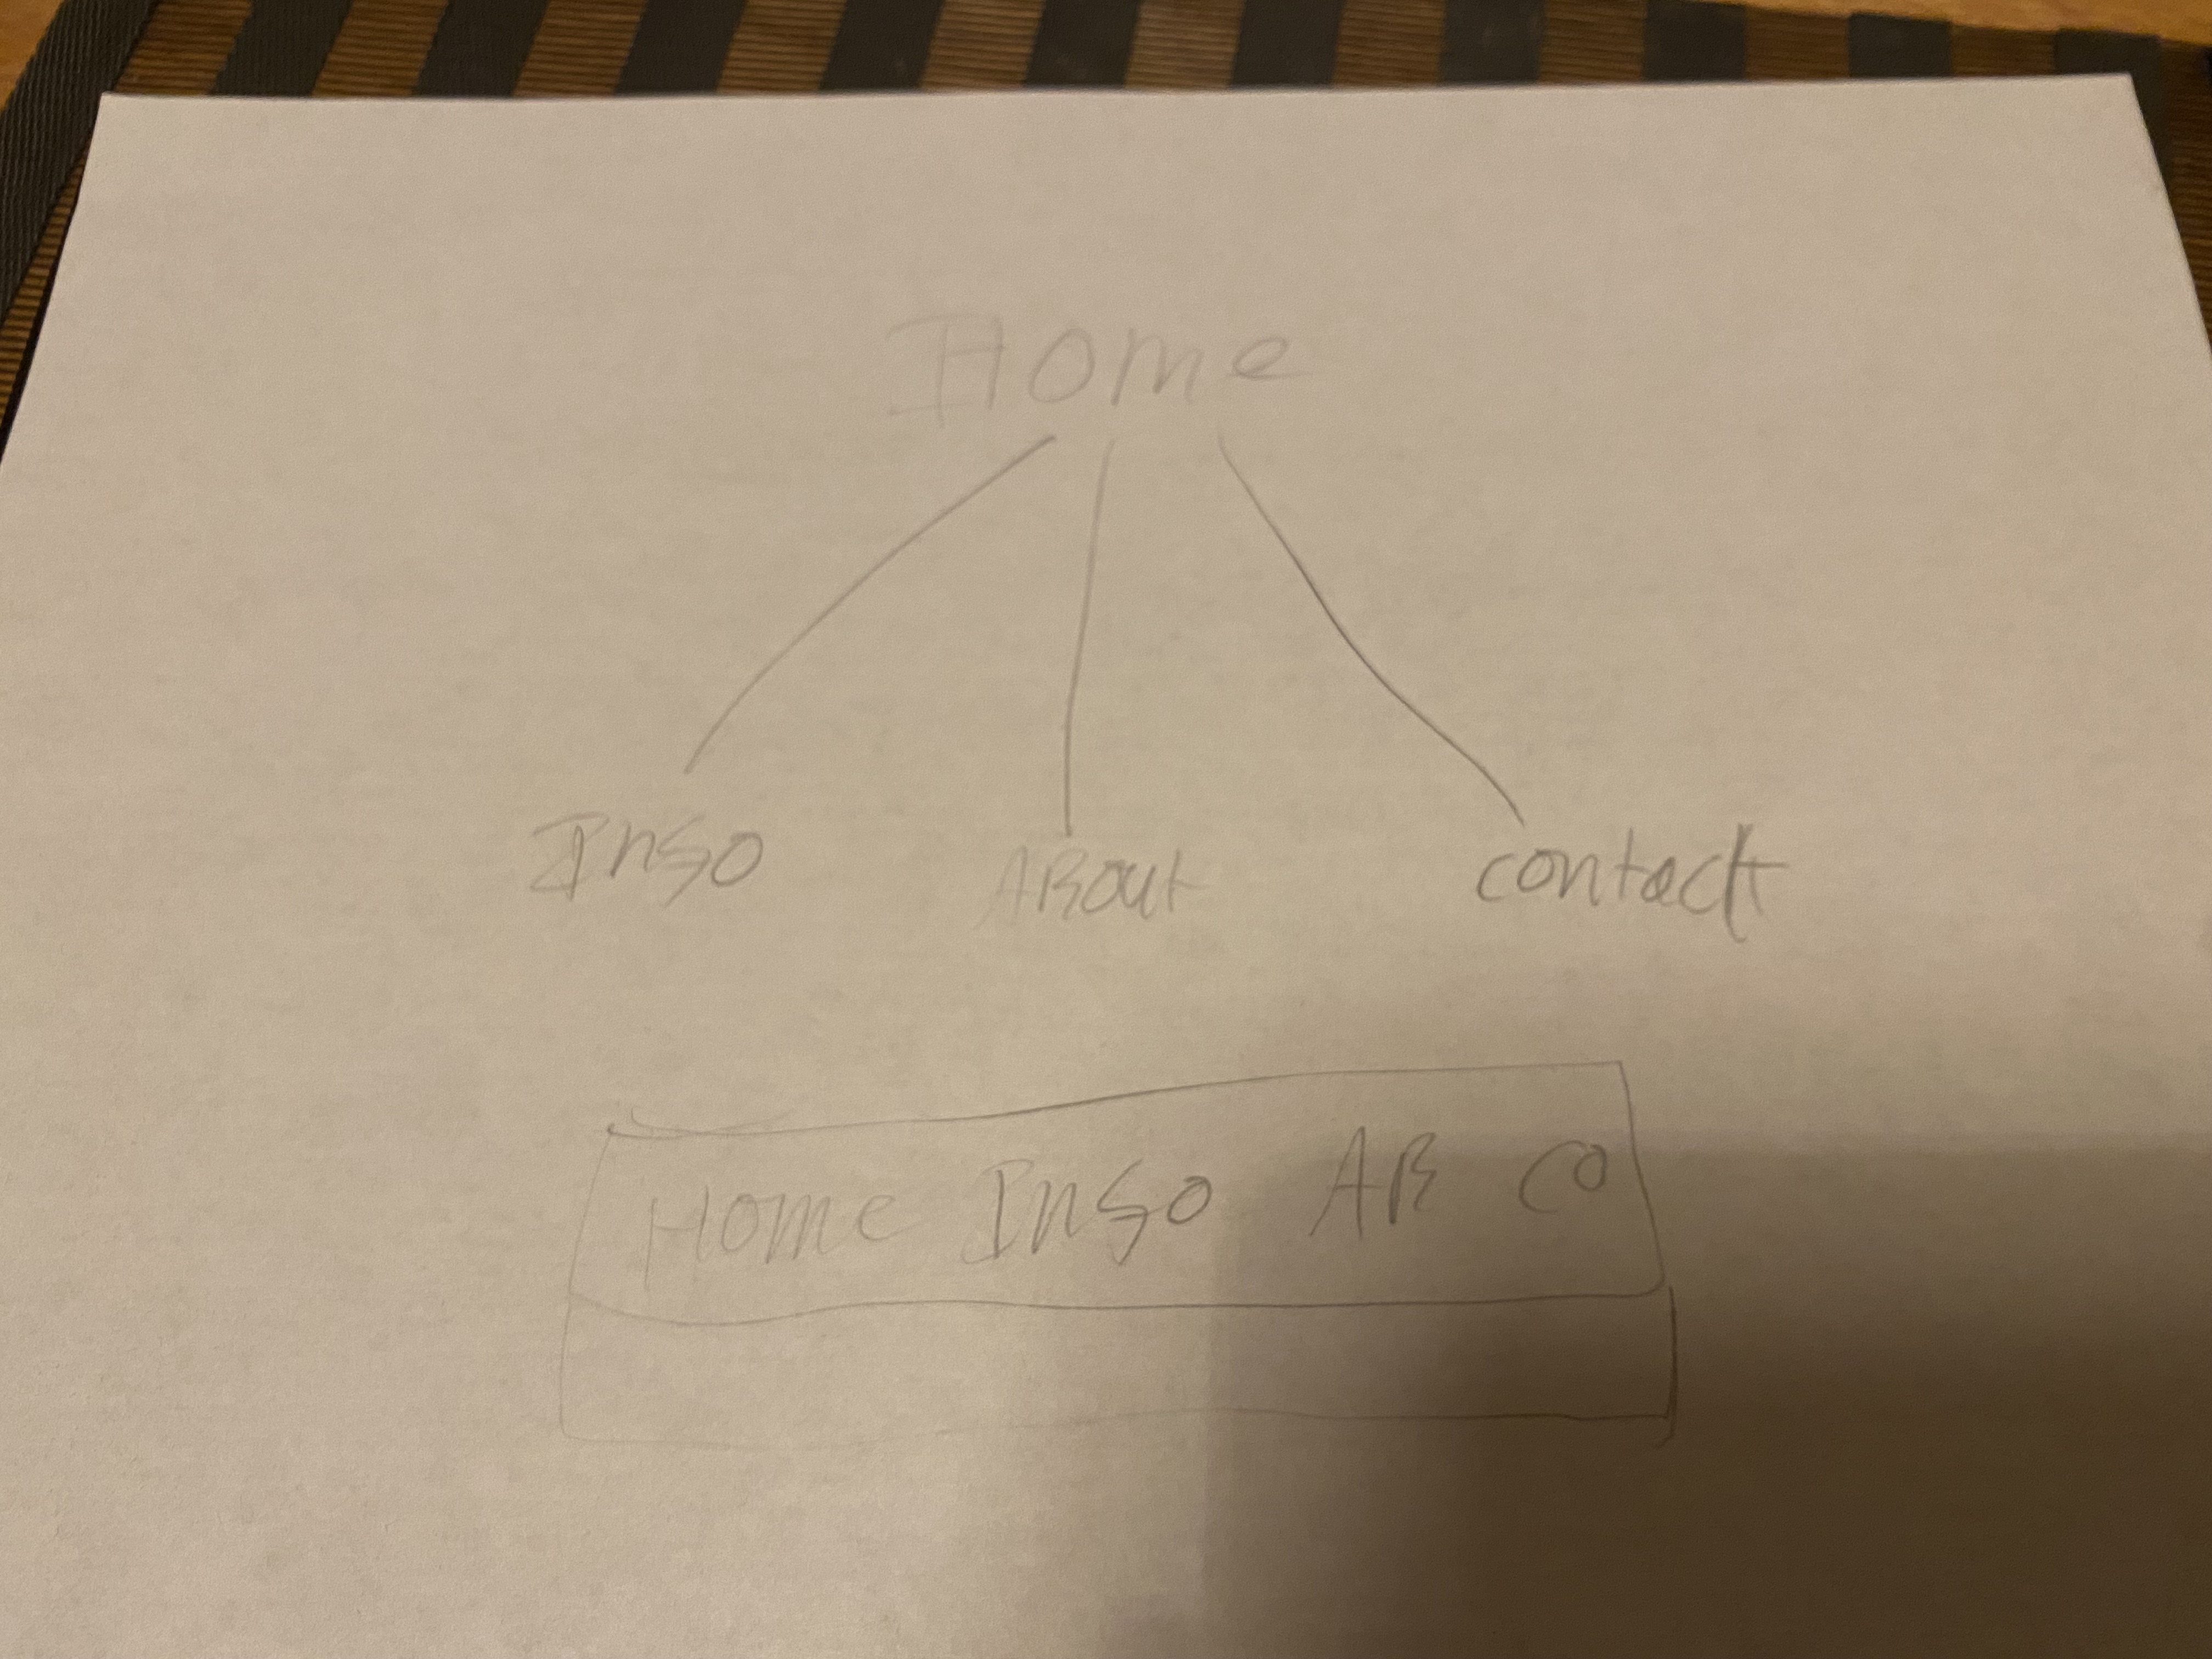 Home
Inso About contact
Home Inso AB CO